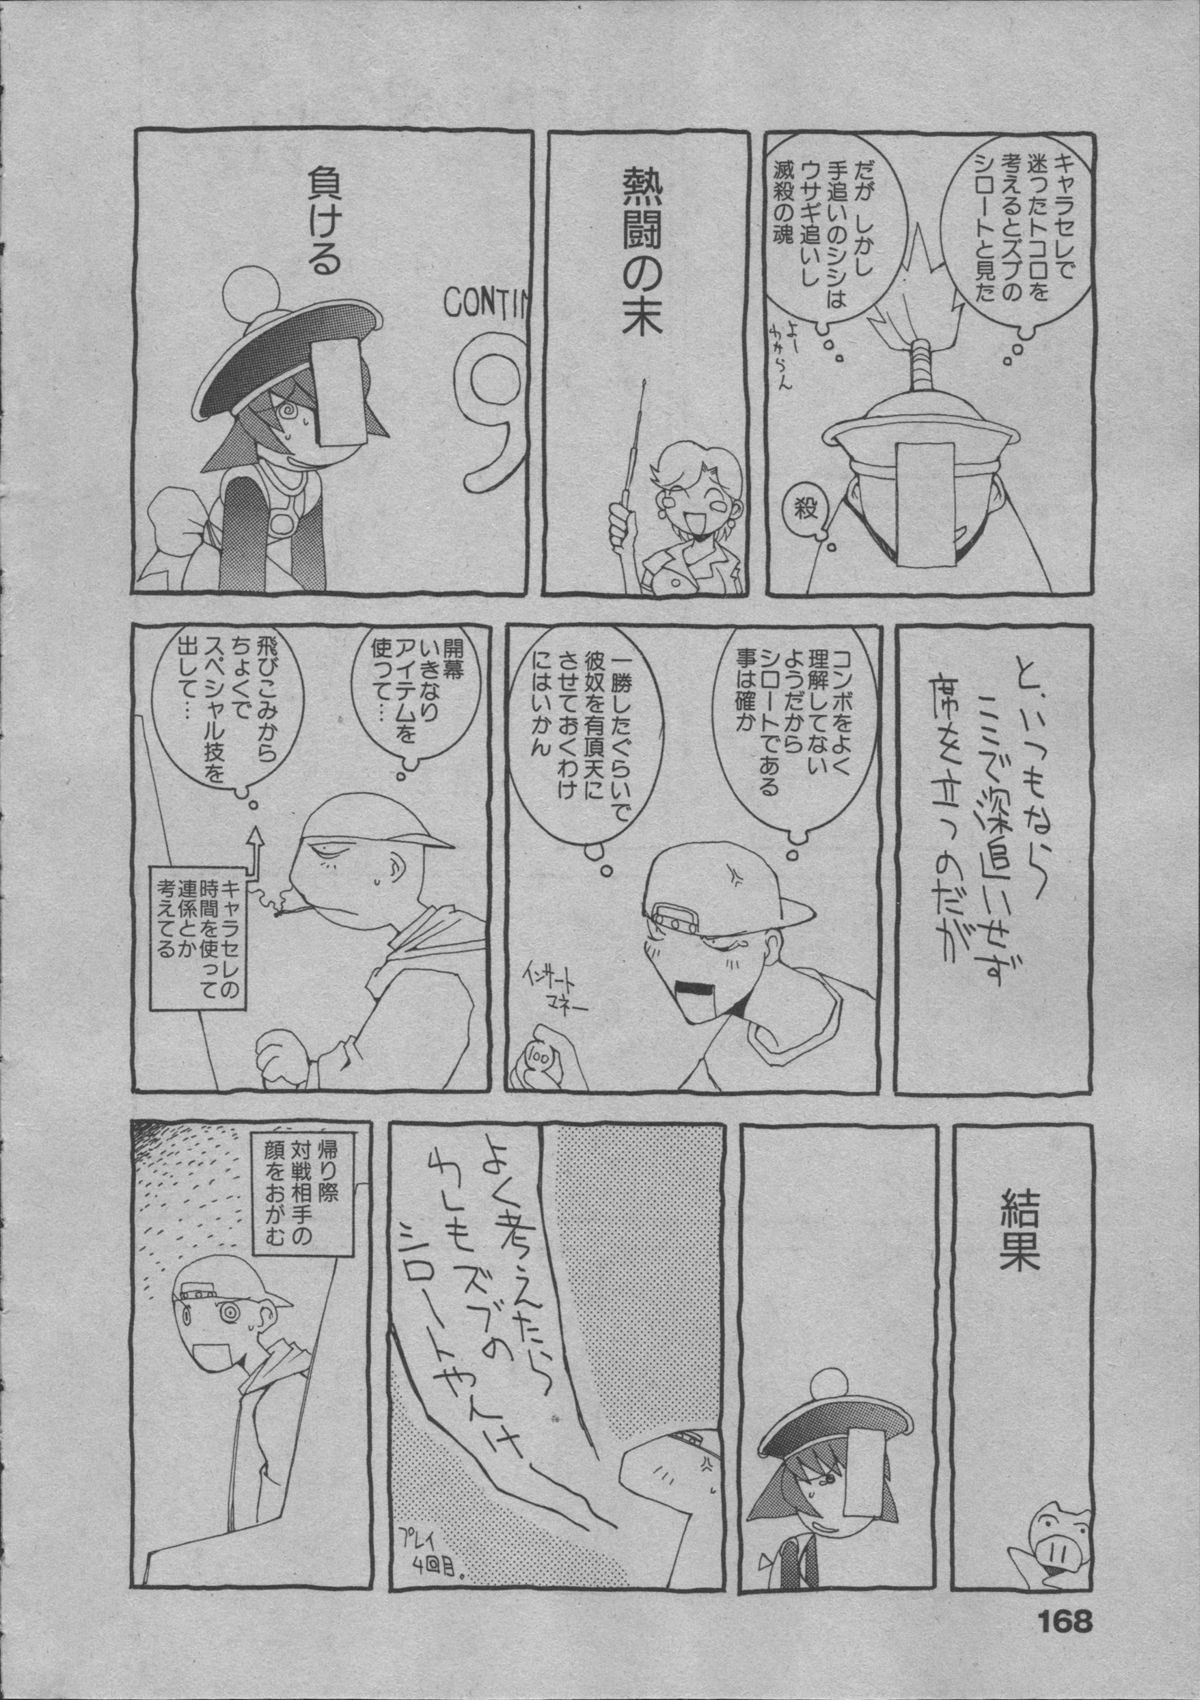 キャラセレで
迷ったトコロを
考えるとズブの
シロートと見た
だが しかし
手追いのシシは
ウサギ追いし
滅殺の魂
よー
わからん
殺
熱闘の末
負ける
CONTIN
9
と、いつもなら
ここで深追いせず
席を立つのだが
コンボをよく
理解してない
ようだから
シロートである
事は確か
一勝したぐらいで
彼奴を有頂天に
させておくわけ
にはいかん
インサート
マネー
100
開幕
いきなり
アイテムを
使つて…
飛びこみから
ちょくで
スペシャル技を
出して…
キャラセレの
時間を使って
連係とか
考えてる
結果
よく考えたら
わしもズブの
シロートやんけ
プレイ
4回目.
帰り際
対戦相手の
顔をおがむ
168